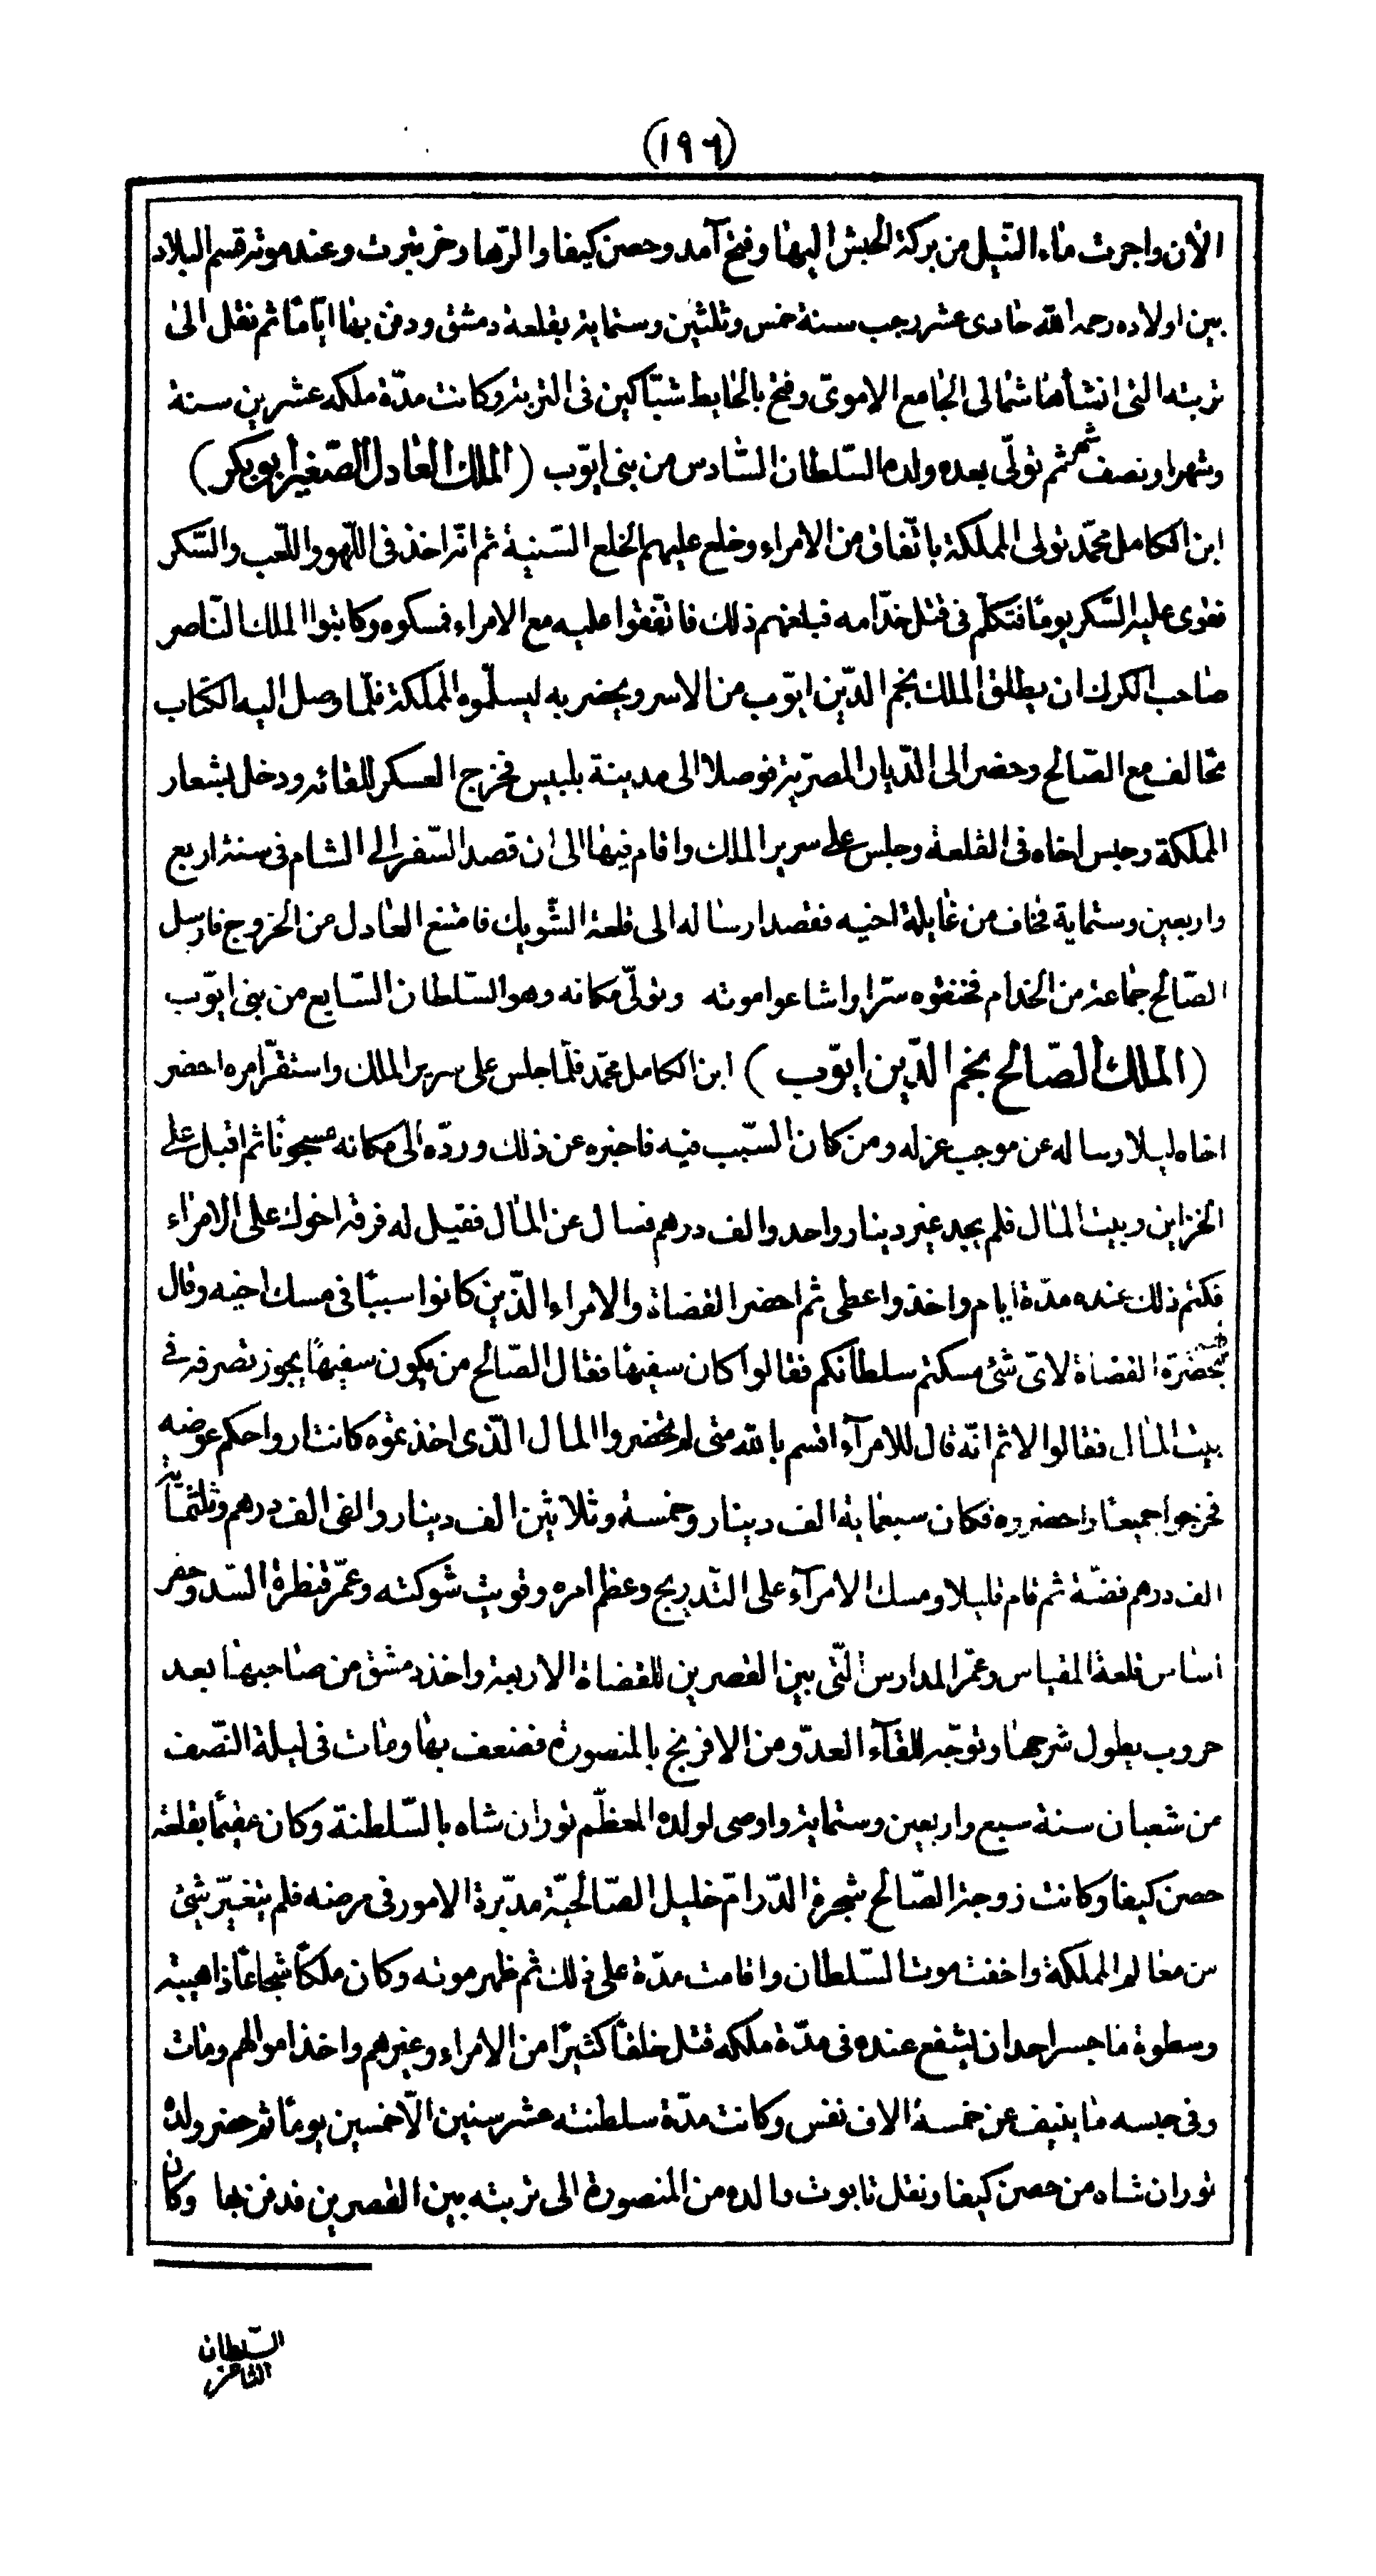 (١٩٦)
الآن واجرت ماء النيل من بركة الحبش اليها وفتح آمد وحصن كيفا والرها وخرتبرت وعند موته قسم البلاد
بين اولاده رحمه الله حادى عشر رجب سنة خمس وثلثين وستماية بقلعة دمشق ودفن بها اياما ثم نقل الى
تربته التى انشأها شمالى الجامع الاموى وفتح بالحايط شباكين فى التربة وكانت مدة ملكه عشرين سنة
وشهرا ونصف شهر ثم تولى بعده ولده السلطان السادس من بنى ايوب (الملك العادل الصغير ابو بكر)
ابن الكامل محمد تولى المملكة باتفاق من الامراء وخلع عليهم الخلع السنية ثم انه اخذ فى اللهو واللعب والسكر
فقوى عليه السكر يوما فتكلم فى قتل خدامه فبلغهم ذلك فاتفقوا عليه مع الامراء فمسكوه وكاتبوا الملك الناصر
صاحب الكرك ان يطلق الملك نجم الدين ايوب من الاسر ويحضر به ليسلموه المملكة فلما وصل اليه الكتاب
تحالف مع الصالح وحضر الى الديار المصرية فوصلا الى مدينة بلبيس فخرج العسكر للقائه ودخل بشعار
المملكة وحبس اخاه فى القلعة وجلس على سرير الملك واقام فيها الى ان قصد السفر الى الشام فى سنة اربع
واربعين وستماية فخاف من غايلة اخيه فقصد ارساله الى قلعة الشوبك فامتنع العادل من الخروج فارسل
الصالح جماعة من الخدام فخنقوه سترا واشاعوا موته وتولى مكانه وهو السلطان السابع من بنى ايوب
(الملك الصالح نجم الدين ايوب) ابن الكامل محمد فلما جلس على سرير الملك واستقر امره احضر
اخاه ليلا وساله عن موجب عزله ومن كان السبب فيه فاخبره عن ذلك ورده الى مكانه مسجونا ثم اقبل على
الخزاين وبيت المال فلم يجد غير دينار واحد والف درهم فسال عن المال فقيل له فرقه اخوك على الامراء
فكتم ذلك عنده مدة ايام واخذ واعطى ثم احضر القضاة والامراء الذين كانوا سببا فى مسك اخيه وقال
بحضرة القضاة لاى شئ مسكتم سلطانكم فقالوا كان سفيها فقال الصالح من يكون سفيها يجوز تصرفه فى
بيت المال فقالوا لا ثم انه قال للامرآء اقسم بالله متى لم تحضروا المال الذى اخذتموه كانت ارواحكم عوضه
فخرجوا جميعا واحضروه فكان سبعماية الف دينار وخمسة وثلاثين الف دينار والفى الف درهم وثلثماية
الف درهم فضة ثم قام قليلا ومسك الامرآء على التدريج وعظم امره وقويت شوكته وعمر قنطرة السد وحفر
اساس قلعة المقياس وعمر المدارس التى بين القصرين للقضاة الاربعة واخذ دمشق من صاحبها بعد
حروب يطول شرحها وتوجه للقآء العدو من الافرنج بالمنصورة فضعف بها ومات فى ليلة النصف
من شعبان سنة سبع واربعين وستماية واوصى لولده المعظم توران شاه بالسلطنة وكان مقيما بقلعة
حصن كيفا وكانت زوجة الصالح شجرة الدر ام خليل الصالحية مدبرة الامور فى مرضه فلم يتغير شئ
من معالم المملكة واخفت موت السلطان واقامت مدة على ذلك ثم ظهر موته وكان ملكا شجاعا ذا هيبته
وسطوة ما جسر احد ان يشفع عنده فى مدة ملكه قتل خلقا كثيرا من الامراء وغيرهم واخذ اموالهم ومات
وفى حبسه ما ينيف عن خمسة الاف نفس وكانت مدة سلطنته عشر سنين الا خمسين يوما ثم حضر ولده
توران شاه من حصن كيفا ونقل تابوت والده من المنصورة الى تربته بين القصرين فدفن بها وكان
السلطان
الثامن